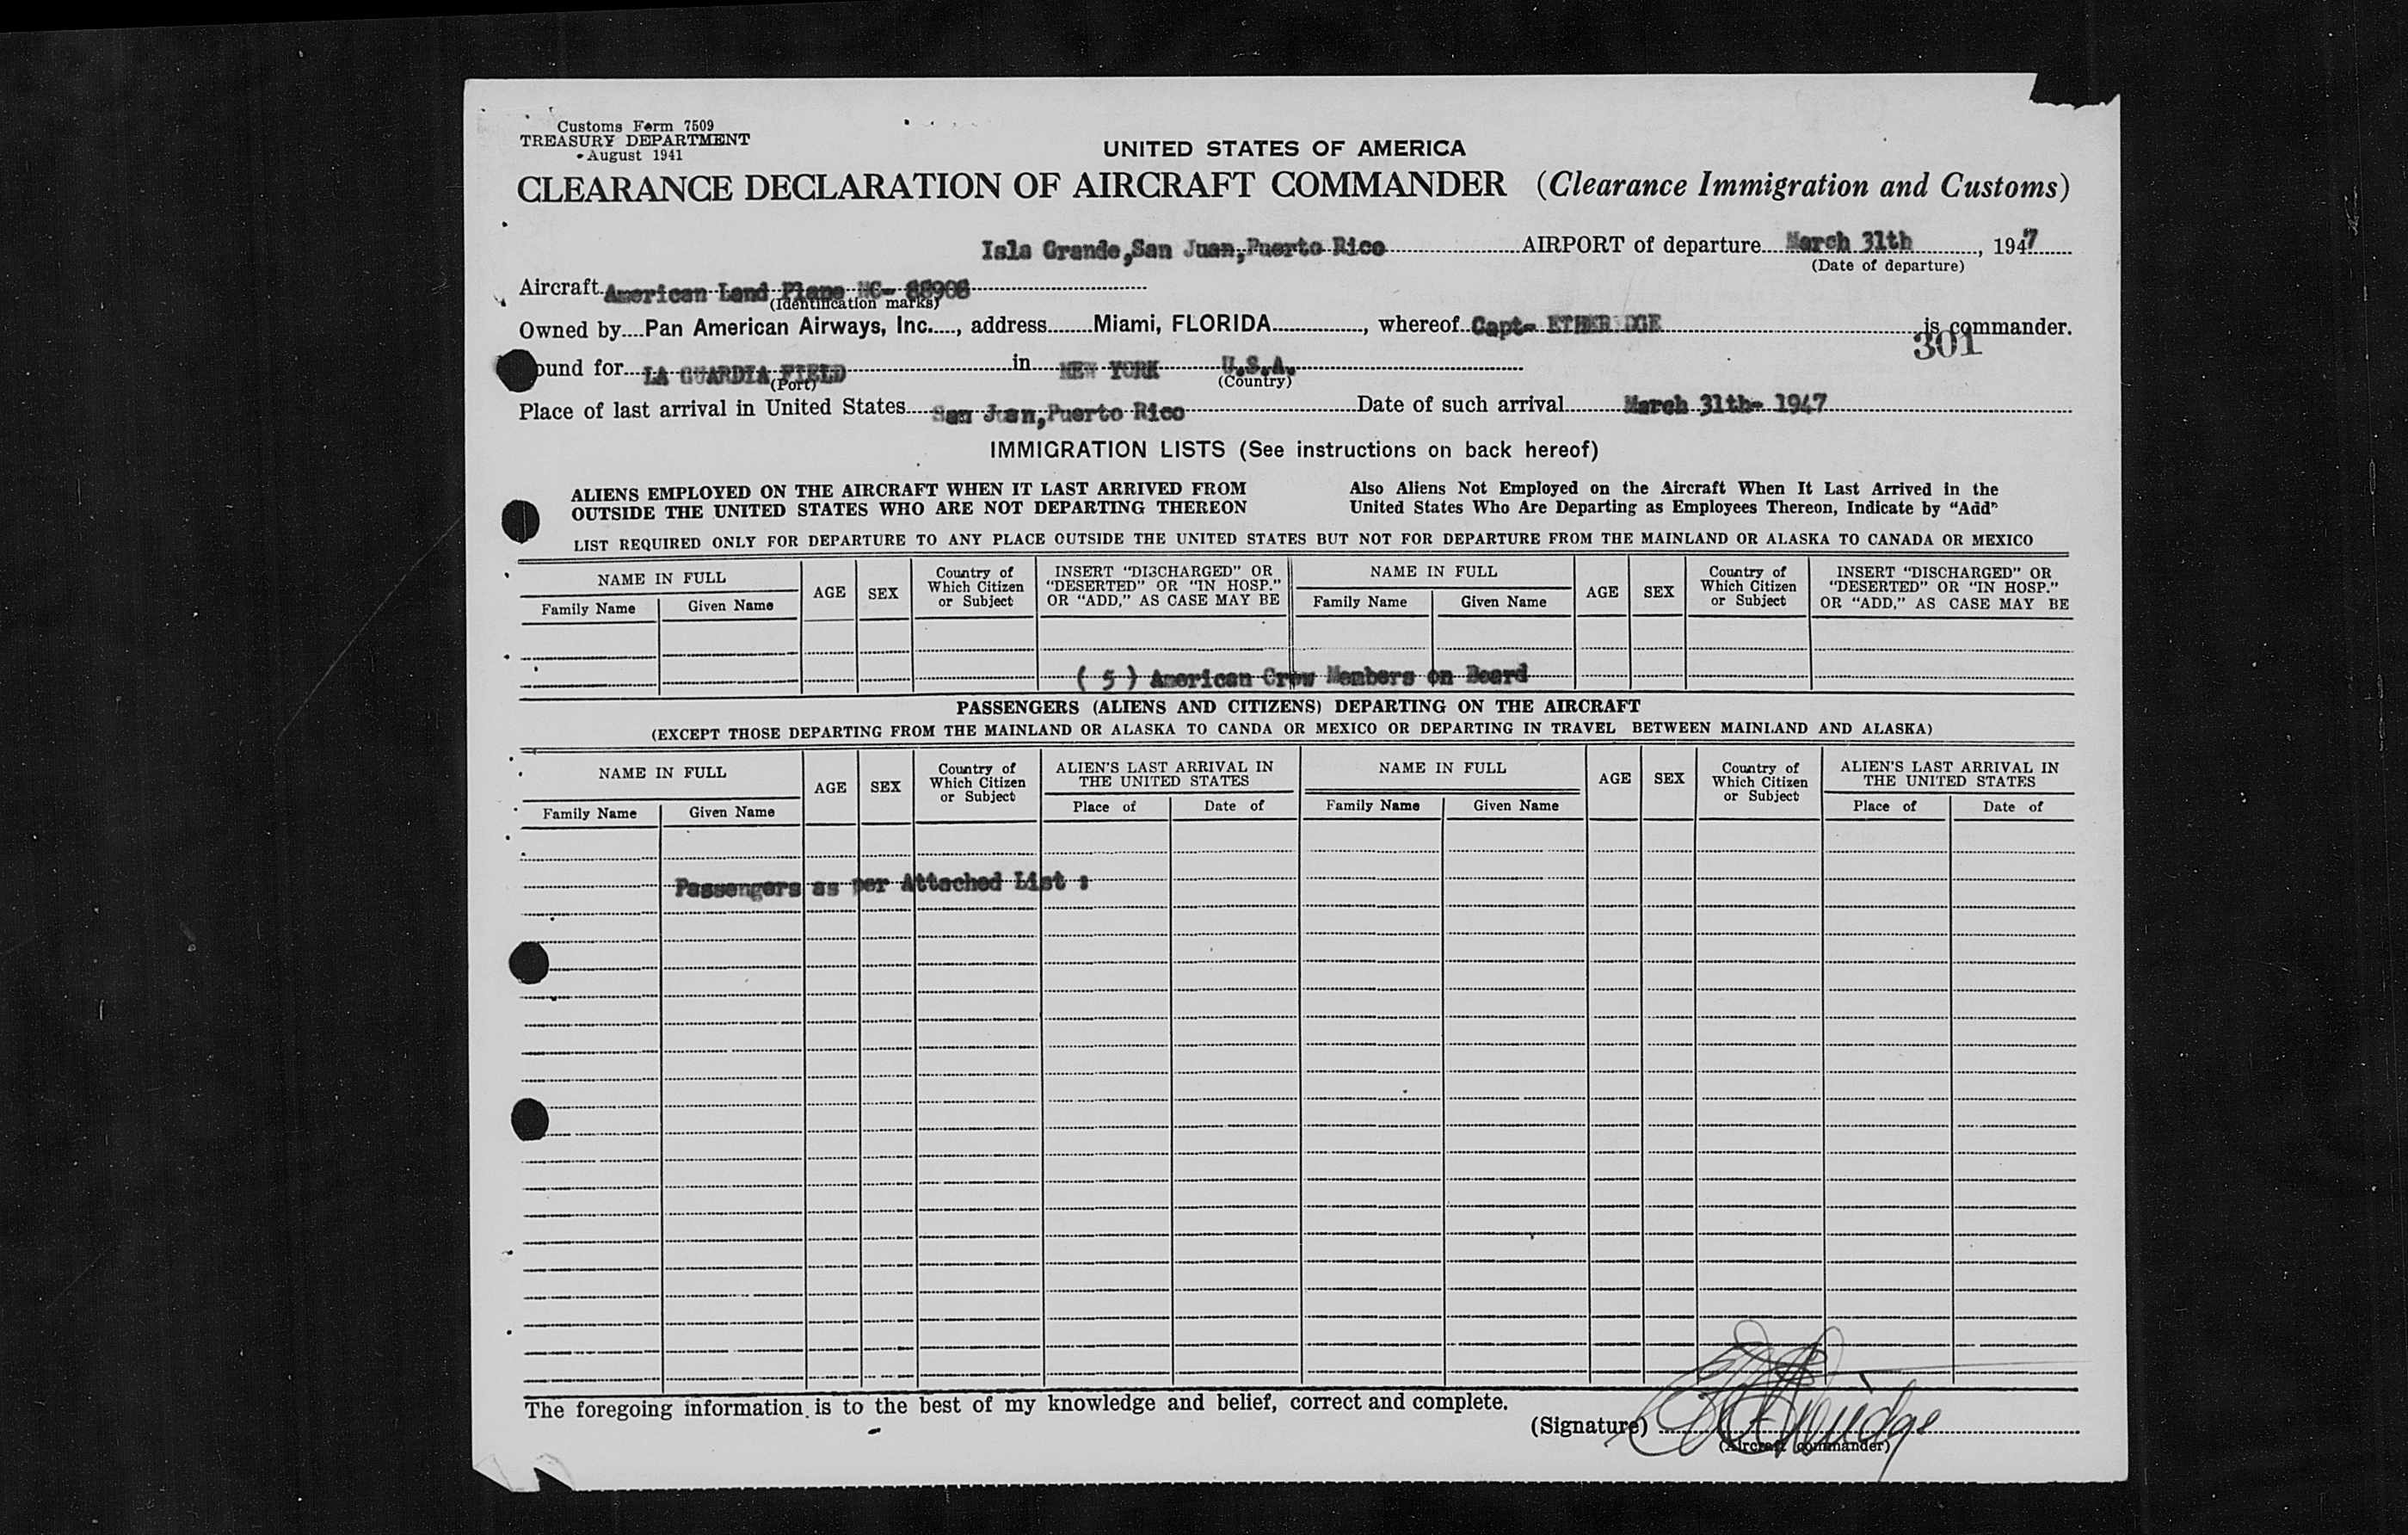 Customs Form 7509
TREASURY DEPARTMENT
August 1941
UNITED STATES OF AMERICA
CLEARANCE DECLARATION OF AIRCRAFT COMMANDER (Clearance Immigration and Customs)
Isla Grande, San Juan, Puerto Rico AIRPORT of departure March 31th, 1947
(Date of departure)
Aircraft American Land Plane NC- 88908
(Identification marks)
Owned by Pan American Airways, Inc., address Miami, FLORIDA, whereof Capt- ETHERIDGE is commander.
301
ound for LA GUARDIA FIELD in NEW YORK U.S.A.
(Port) (Country)
Place of last arrival in United States San Juan, Puerto Rico Date of such arrival March 31th- 1947
IMMIGRATION LISTS (See instructions on back hereof)
ALIENS EMPLOYED ON THE AIRCRAFT WHEN IT LAST ARRIVED FROM
OUTSIDE THE UNITED STATES WHO ARE NOT DEPARTING THEREON
Also Aliens Not Employed on the Aircraft When It Last Arrived in the
United States Who Are Departing as Employees Thereon, Indicate by "Add"
LIST REQUIRED ONLY FOR DEPARTURE TO ANY PLACE OUTSIDE THE UNITED STATES BUT NOT FOR DEPARTURE FROM THE MAINLAND OR ALASKA TO CANADA OR MEXICO
NAME IN FULL
Family Name Given Name
AGE
SEX
Country of
Which Citizen
or Subject
INSERT "DISCHARGED" OR
"DESERTED" OR "IN HOSP."
OR "ADD," AS CASE MAY BE
NAME IN FULL
Family Name Given Name
AGE
SEX
Country of
Which Citizen
or Subject
INSERT "DISCHARGED" OR
"DESERTED" OR "IN HOSP."
OR "ADD," AS CASE MAY BE
( 5 ) American Crew Members on Board
PASSENGERS (ALIENS AND CITIZENS) DEPARTING ON THE AIRCRAFT
(EXCEPT THOSE DEPARTING FROM THE MAINLAND OR ALASKA TO CANDA OR MEXICO OR DEPARTING IN TRAVEL BETWEEN MAINLAND AND ALASKA)
NAME IN FULL
Family Name Given Name
AGE
SEX
Country of
Which Citizen
or Subject
ALIEN'S LAST ARRIVAL IN
THE UNITED STATES
Place of Date of
NAME IN FULL
Family Name Given Name
AGE
SEX
Country of
Which Citizen
or Subject
ALIEN'S LAST ARRIVAL IN
THE UNITED STATES
Place of Date of
Passengers as per Attached List :
The foregoing information is to the best of my knowledge and belief, correct and complete.
(Signature)
(Aircraft commander)